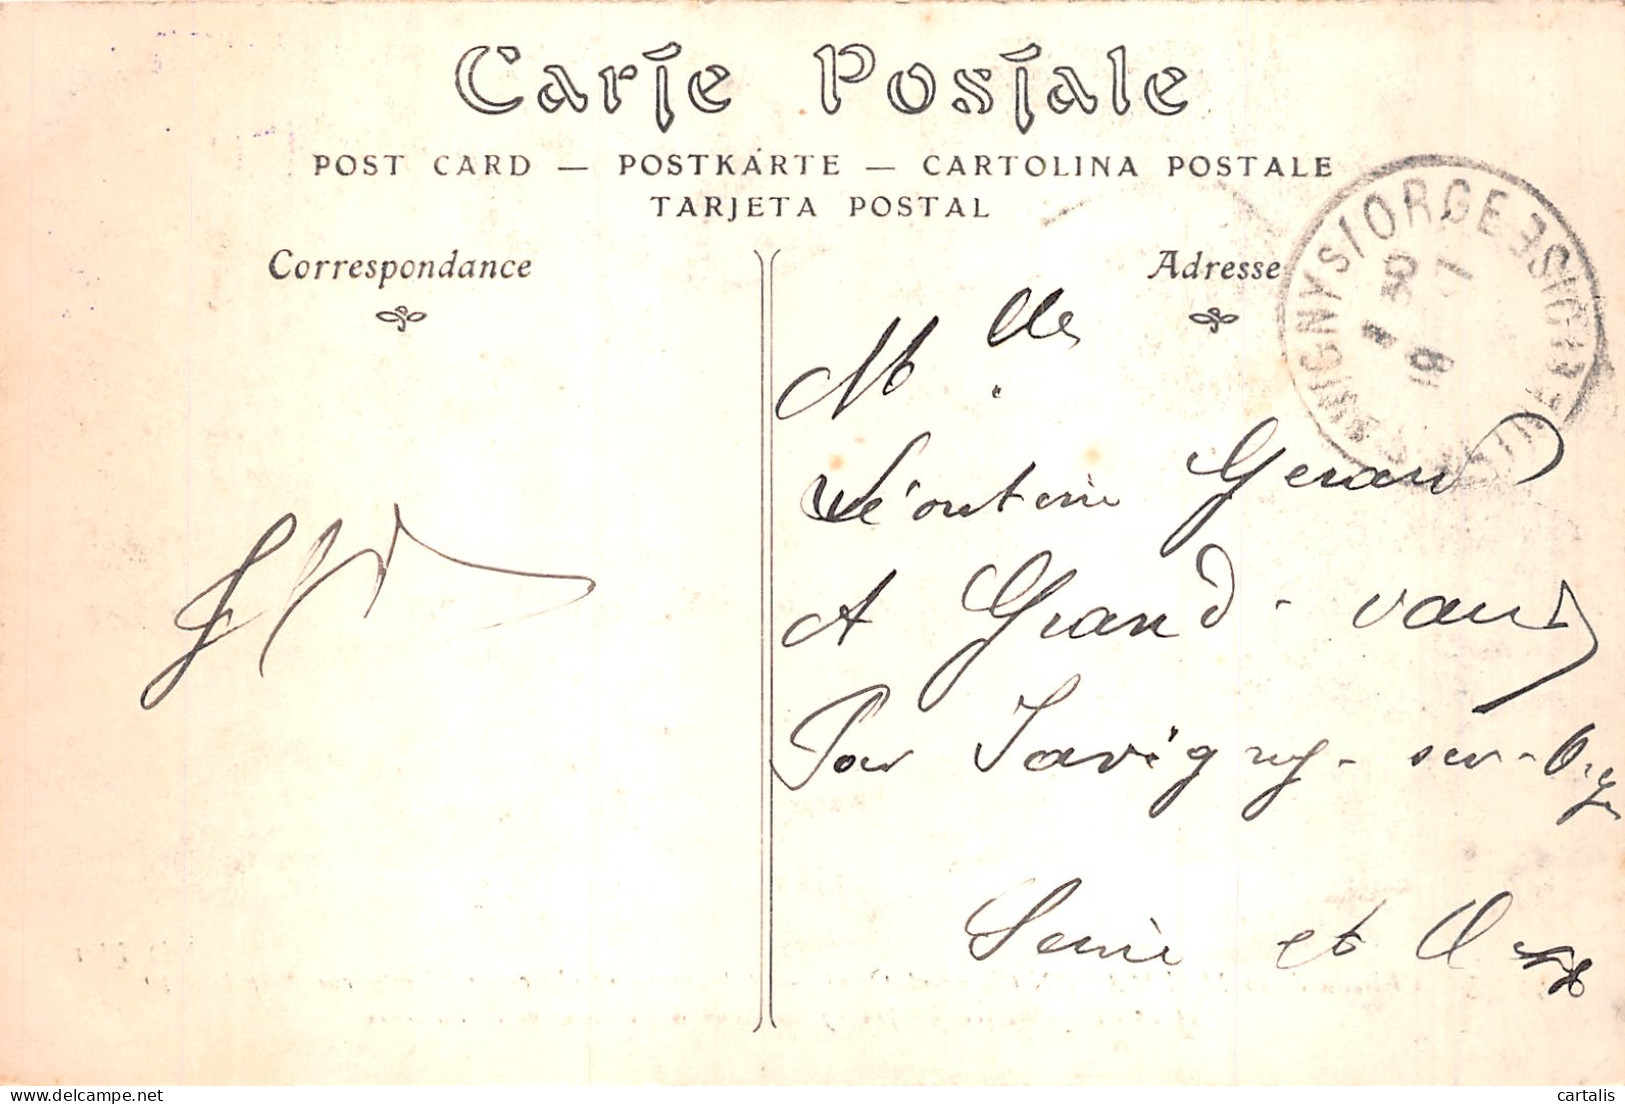 Carte Postale
POST CARD — POSTKARTE — CARTOLINA POSTALE
TARJETA POSTAL
Correspondance
Adresse
SAVIGNY S/ORGE SEINE-ET-OISE
Mlle
Léontine Gerard
A Grand-vaux
Par Savigny-sur-Orge
Seine et Oise
delcampe.net
cartalis